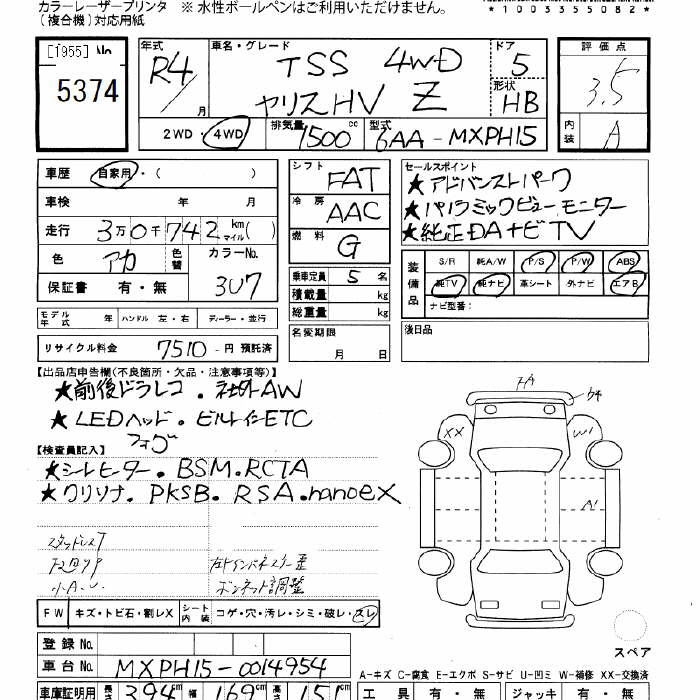 カラーレーザープリンタ ※ 水性ボールペンはご利用いただけません。
(複合機)対応用紙
*1003355082*
[1955] No
5374
年式 車名・グレード ドア 評価点
R4/ 月 TSS 4WD 5 3.5
ヤリスHV Z 形状 HB
2WD・4WD 排気量 1500 cc 型式 6AA-MXPH15 内装 A
車歴 自家用・( )
車検 年 月
走行 3万0千742 km マイル( )
色 アカ 色替 カラーNo. 3U7
保証書 有・無
モデル年式 年 ハンドル 左・右 ディーラー・並行
リサイクル料金 7510-円 預託済
シフト FAT
冷房 AAC
燃料 G
乗車定員 5 名
積載量 kg
総重量 kg
名変期限
月 日
セールスポイント
★アドバンストパーク
★パノラミックビューモニター
★純正DAナビTV
装備品 S/R 純A/W P/S P/W ABS
純TV 純ナビ 革シート 外ナビ エアB
ナビ型番:
後日品
【出品店申告欄(不良箇所・欠品・注意事項等)】
★前後ドラレコ・社外AW
★LEDヘッド・ビルトインETC
フォグ
【検査員記入】
★シートヒーター・BSM・RCTA
★クリソナ・PKSB・RSA・nanoeX
スタッドレス
小A.U
ボンネット調整
XX W1 A1
FW キズ・トビ石・割レX シート内装 コゲ・穴・汚レ・シミ・破レ・スレ
スペア
登録 No.
車台 No. MXPH15-0014954
A-キズ C-腐食 E-エクボ S-サビ U-凹ミ W-補修 XX-交換済
車庫証明用 長さ 394cm 幅 169cm 高さ 151cm
工具 有・無 ジャッキ 有・無